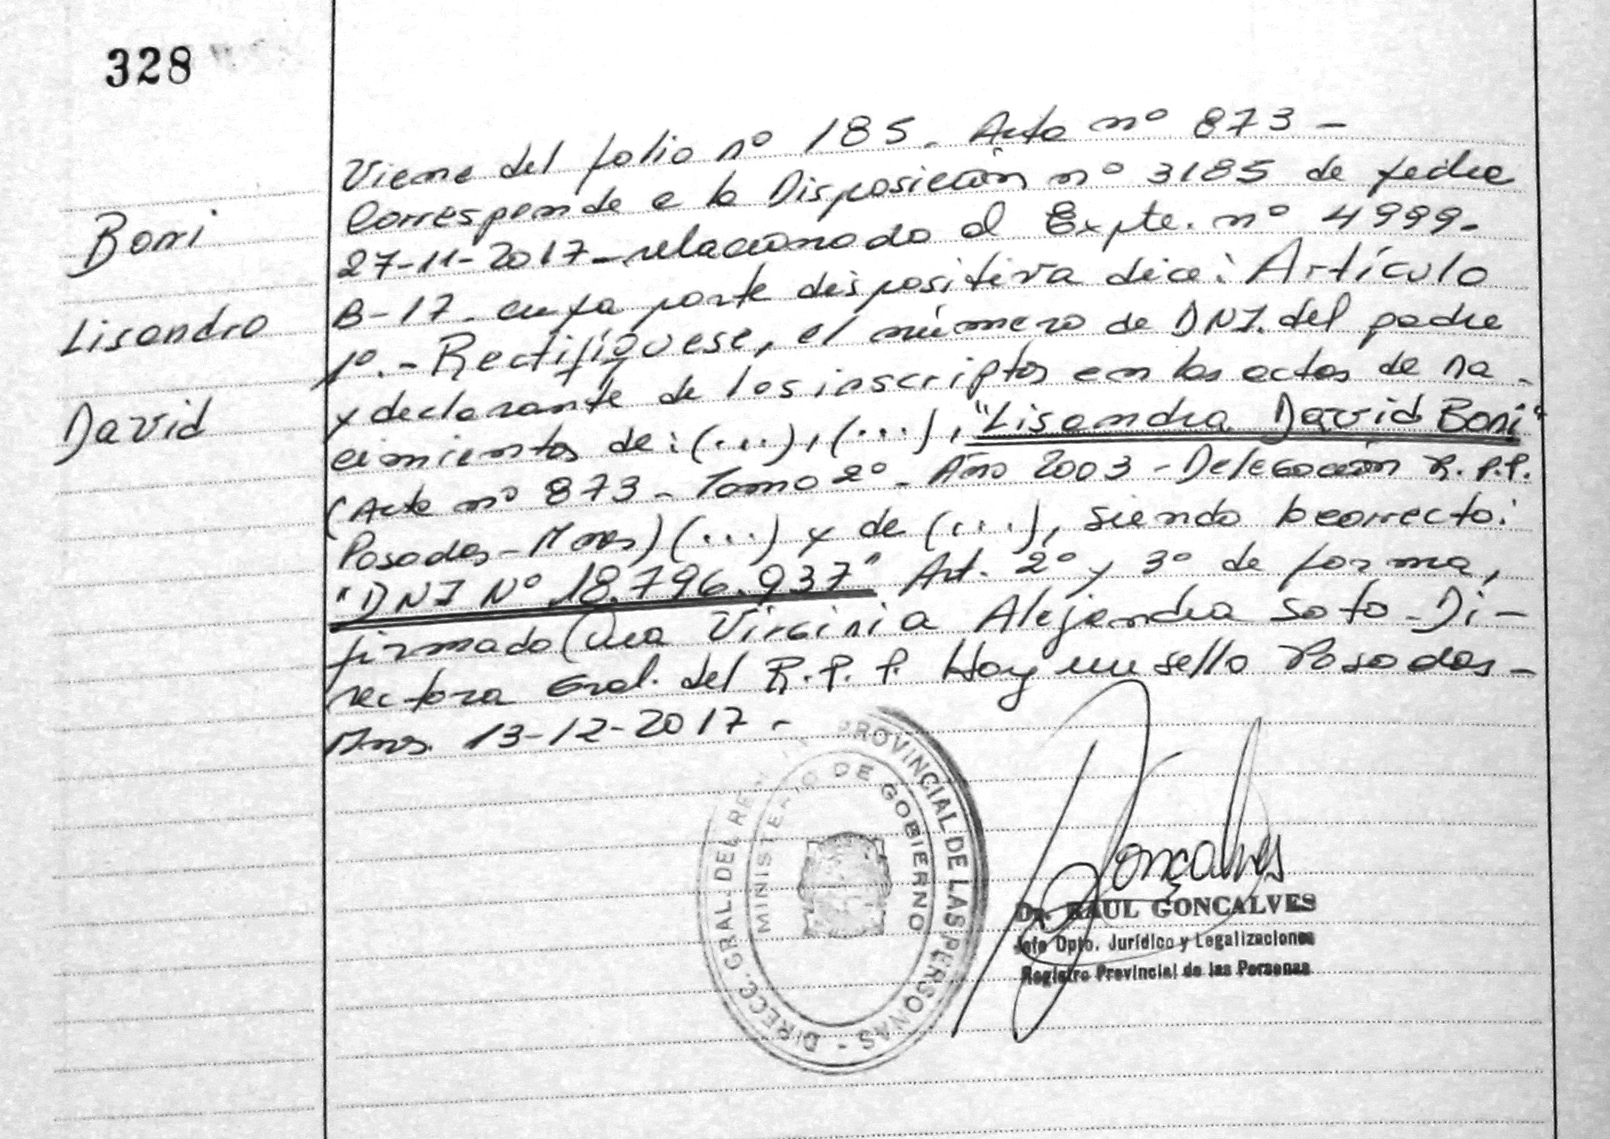 328
Boni
Lisandro
David
Viene del folio nº 185. Acta nº 873 -
Corresponde a la Disposición nº 3185 de fecha
27-11-2017 - relacionado al Expte. nº 4999-
B-17. cuya parte dispositiva dice: Artículo
1º.- Rectifíquese, el número de DNI. del padre
y declarante de los inscriptos en las actas de na-
cimientos de: (...), (...), "Lisandro David Boni"
(Acta nº 873 - Tomo 2º - Año 2003 - Delegación R.P.P.
Posadas - Mnes) (...) y de (...), siendo lo correcto:
"DNI Nº 18.796.937" Art. 2º y 3º de forma,
firmado Dra Virginia Alejandra Soto - Di-
rectora Gral. del R.P.P. Hay un sello Posadas -
Mnes. 13-12-2017.-
DIRECC. GRAL. DEL REG. PROVINCIAL DE LAS PERSONAS -
MINISTERIO DE GOBIERNO
Goncalves
Dr. RAUL GONCALVES
Jefe Dpto. Jurídico y Legalizaciones
Registro Provincial de las Personas